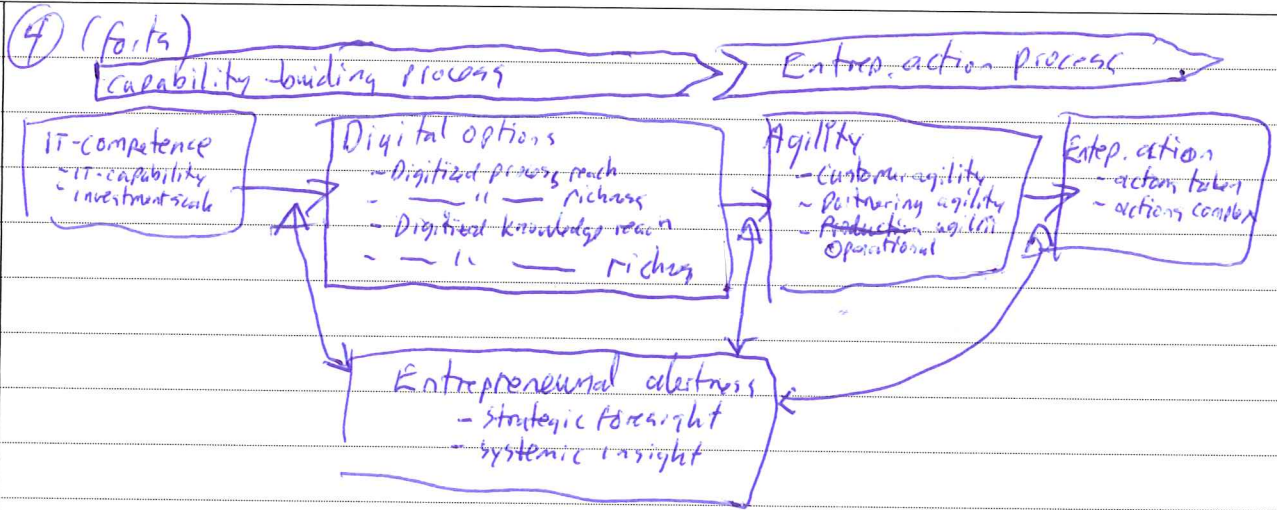 ④ (forts)
Capability-buiding process
Entrep. action process
IT-competence
- IT-capability
- investment scale
Digital options
- Digitized process reach
- — " — richness
- Digitized knowledge reach
- — " — richness
Agility
- Customer agility
- Partnering agility
- Production agility
Operational
Entep. action
- actions taken
- actions complex
Entrepreneurial alertness
- Strategic foresight
- systemic insight